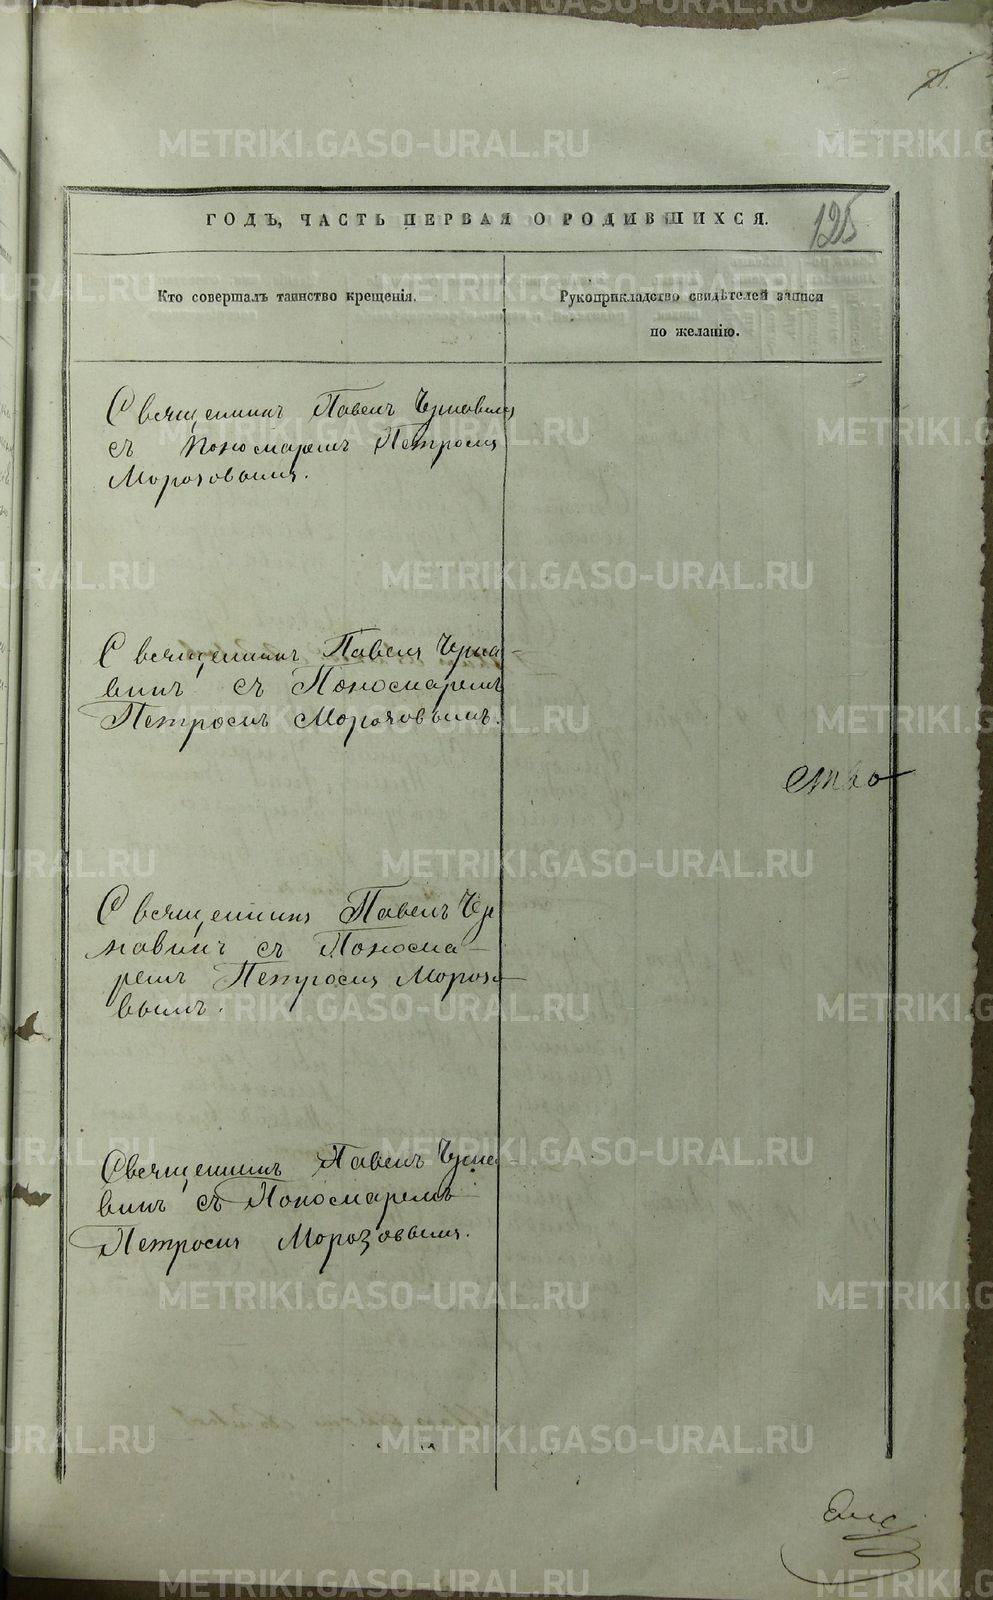 21.
ГОДЪ, ЧАСТЬ ПЕРВАЯ О РОДИВШИХСЯ.
125
Кто совершалъ таинство крещенія.
Рукоприкладство свидѣтелей записи
по желанію.
Священникъ Павелъ Чернавинъ
съ Пономаремъ Петромъ
Морозовымъ.
Священникъ Павелъ Черна-
винъ съ Пономаремъ
Петромъ Морозовымъ.
ство
Священникъ Павелъ Чер
навинъ съ Понома-
ремъ Петромъ Морозо-
вымъ.
Священникъ Павелъ Черна-
винъ съ Пономаремъ
Петромъ Морозовымъ.
METRIKI.GASO-URAL.RU